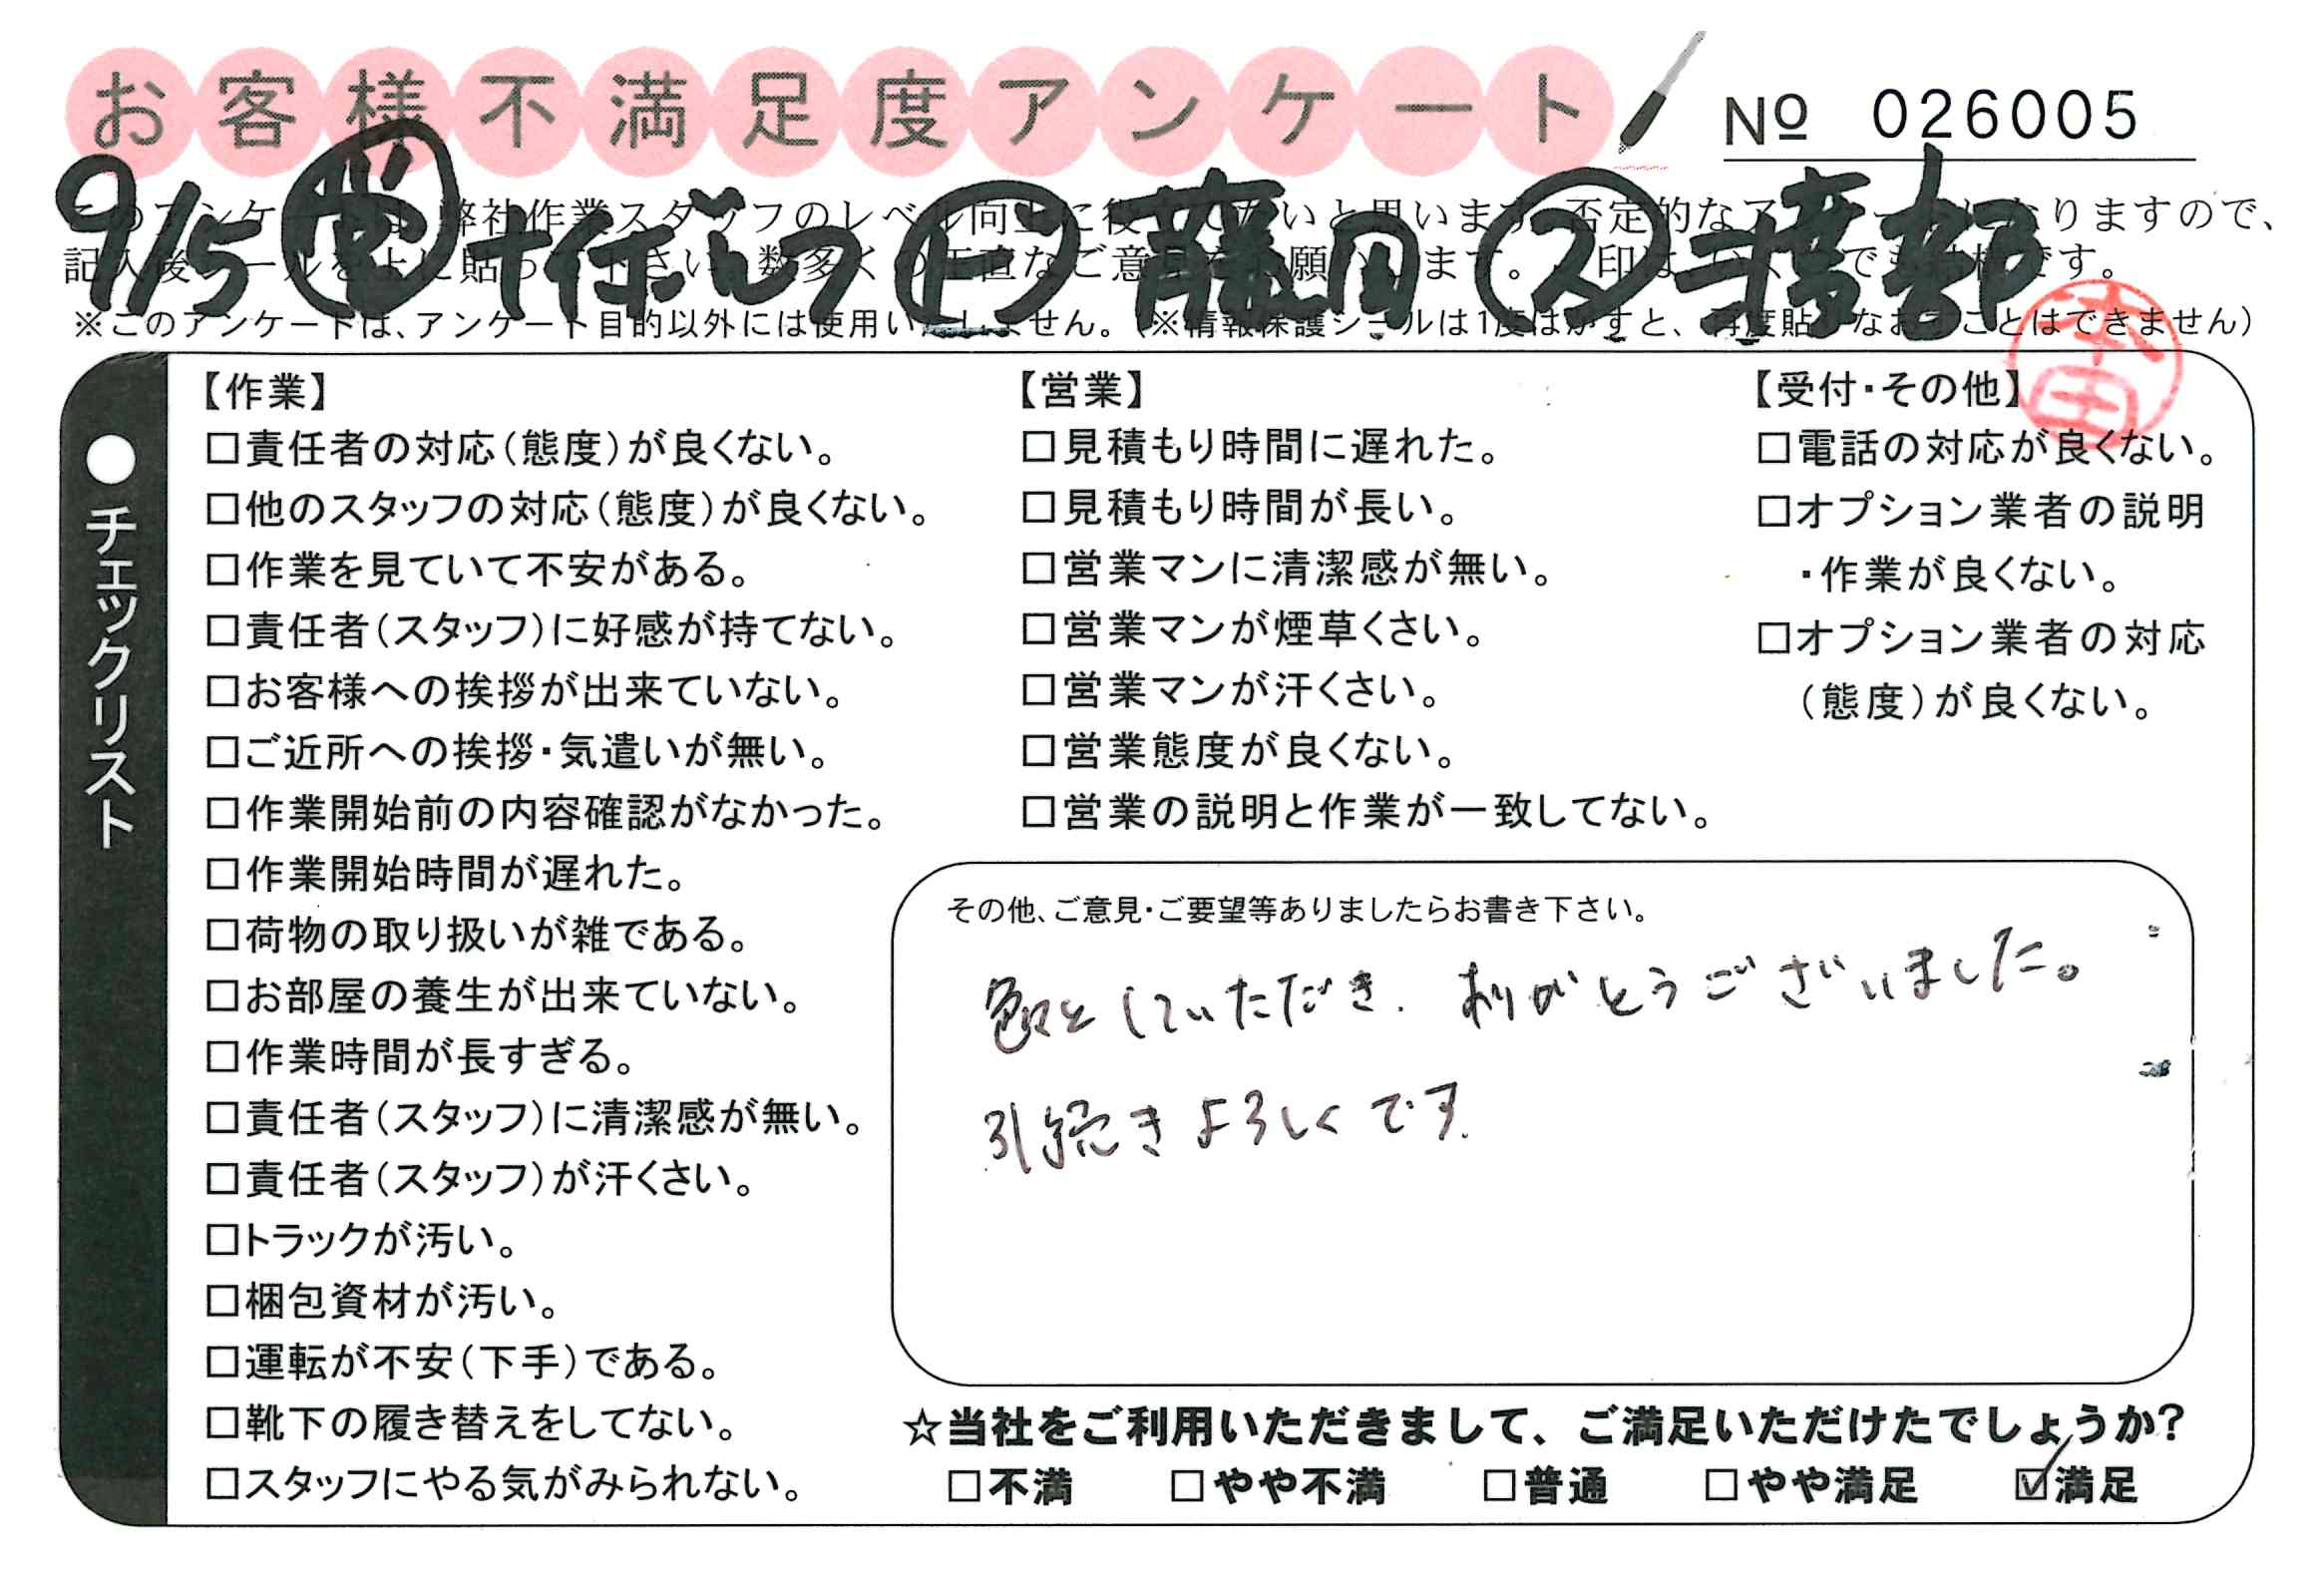 お客様不満足度アンケート
№ 026005
このアンケートは、弊社作業スタッフのレベル向上に役立てたいと思います。否定的なアンケートになりますので、
記入後シールを上に貼って下さい。数多くの正直なご意見をお願いします。 印は、いくつでも結構です。
※このアンケートは、アンケート目的以外には使用いたしません。(※情報保護シールは1度はがすと、再度貼りなおすことはできません)
9/5 藤田 ス 渡部
本田
●チェックリスト
【作業】
□責任者の対応(態度)が良くない。
□他のスタッフの対応(態度)が良くない。
□作業を見ていて不安がある。
□責任者(スタッフ)に好感が持てない。
□お客様への挨拶が出来ていない。
□ご近所への挨拶・気遣いが無い。
□作業開始前の内容確認がなかった。
□作業開始時間が遅れた。
□荷物の取り扱いが雑である。
□お部屋の養生が出来ていない。
□作業時間が長すぎる。
□責任者(スタッフ)に清潔感が無い。
□責任者(スタッフ)が汗くさい。
□トラックが汚い。
□梱包資材が汚い。
□運転が不安(下手)である。
□靴下の履き替えをしてない。
□スタッフにやる気がみられない。
【営業】
□見積もり時間に遅れた。
□見積もり時間が長い。
□営業マンに清潔感が無い。
□営業マンが煙草くさい。
□営業マンが汗くさい。
□営業態度が良くない。
□営業の説明と作業が一致してない。
【受付・その他】
□電話の対応が良くない。
□オプション業者の説明
・作業が良くない。
□オプション業者の対応
(態度)が良くない。
その他、ご意見・ご要望等ありましたらお書き下さい。
色々としていただき. ありがとうございました。
引続きよろしくです.
☆当社をご利用いただきまして、ご満足いただけたでしょうか?
□不満 □やや不満 □普通 □やや満足 ☑満足